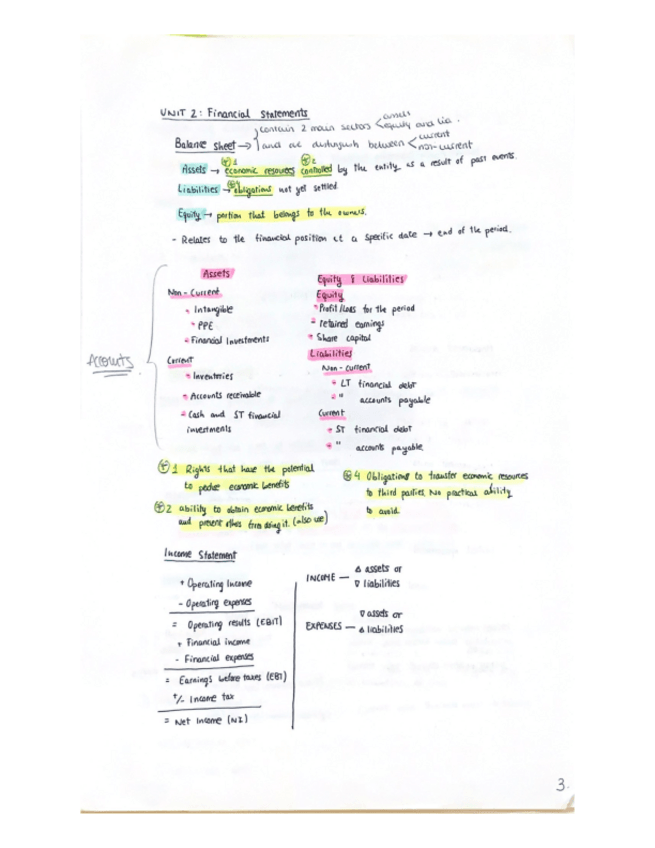 UNIT 2: Financial Statements
Balance sheet → contain 2 main sectors < assets
equity and lia.
and ac distinguish between < current
non-current
Assets → economic resources controlled by the entity as a result of past events.
Liabilities → obligations not yet settled.
Equity → portion that belongs to the owners.
- Relates to the financial position at a specific date → end of the period.
Accounts
Assets
Non-Current
Intangible
PPE
Financial Investments
Current
Inventories
Accounts receivable
Cash and ST financial
investments
Equity & Liabilities
Equity
Profit/Loss for the period
retained earnings
Share capital
Liabilities
Non-current
LT financial debt
" accounts payable
Current
ST financial debt
" accounts payable
1 Rights that have the potential
to produce economic benefits
2 ability to obtain economic benefits
and prevent others from doing it. (also use)
4 Obligations to transfer economic resources
to third parties. No practical ability
to avoid.
Income Statement
+ Operating Income
- Operating expenses
= Operating results (EBIT)
+ Financial income
- Financial expenses
= Earnings before taxes (EBT)
+/- Income tax
= Net Income (NI)
INCOME — Δ assets or
∇ liabilities
EXPENSES — ∇ assets or
Δ liabilities
3.